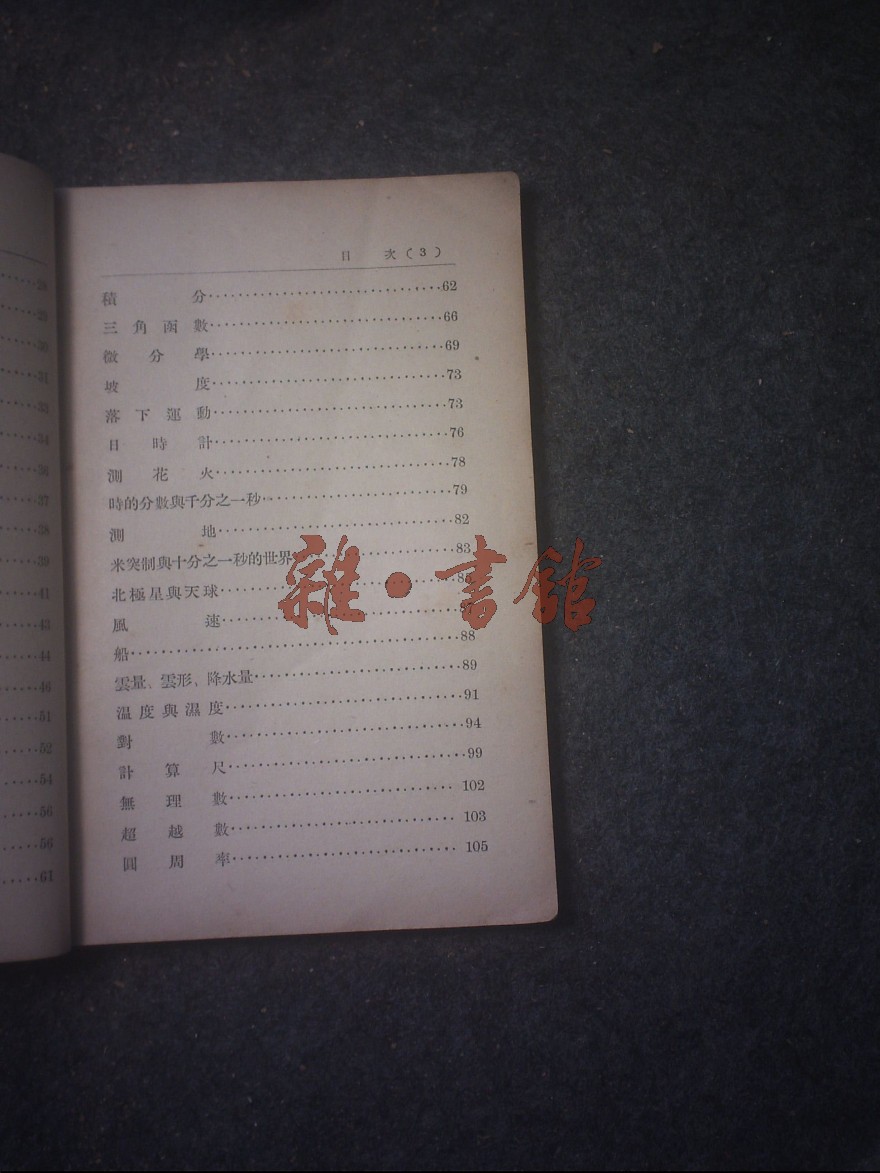 28
29
30
31
33
34
36
37
38
39
41
43
44
46
51
52
54
56
56
61
目　次(3)
積　分……62
三角函數……66
微分學……69
坡　度……73
落下運動……73
日時計……76
測花火……78
時的分數與千分之一秒……79
測　地……82
米突制與十分之一秒的世界……83
北極星與天球……85
風　速……87
船……88
雲量、雲形、降水量……89
溫度與濕度……91
對　數……94
計算尺……99
無理數……102
超越數……103
圓周率……105
雜·書館